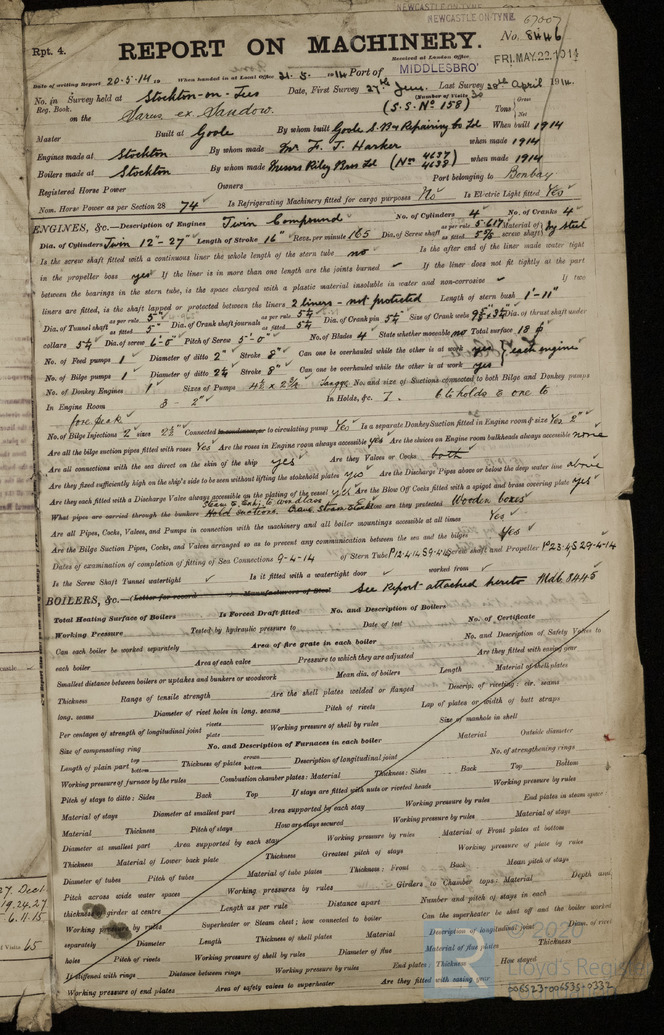 NEWCASTLE-ON-TYNE
NEWCASTLE-ON-TYNE 67007
Rpt. 4.
REPORT ON MACHINERY.
No. 8446
Received at London Office
FRI. MAY. 22. 1914
Date of writing Report 20.5.14 19 When handed in at Local Office 21.5.1914 Port of MIDDLESBRO'
No. in Survey held at Stockton-on-Tees Date, First Survey 27th Last Survey 28th April 1914
Reg. Book. (Number of Visits
on the "Varus" ex "Sandow." (S.S. No 158) Tons Gross Net
Master Built at Goole By whom built Goole S.B. & Repairing Co Ld When built 1914
Engines made at Stockton By whom made Mr F. T. Harker when made 1914
Boilers made at Stockton By whom made Messrs Riley Bros Ld (Nos 4637 4638) when made 1914
Registered Horse Power Owners Port belonging to Bombay
Nom. Horse Power as per Section 28 74 Is Refrigerating Machinery fitted for cargo purposes No Is Electric Light fitted Yes
ENGINES, &c.—Description of Engines Twin Compound No. of Cylinders 4 No. of Cranks 4
Dia. of Cylinders Twin 12"-27" Length of Stroke 16" Revs. per minute 165 Dia. of Screw shaft as per rule 5.617 as fitted Material of screw shaft steel
Is the screw shaft fitted with a continuous liner the whole length of the stern tube no Is the after end of the liner made water tight
in the propeller boss yes If the liner is in more than one length are the joints burned If the liner does not fit tightly at the part
between the bearings in the stern tube, is the space charged with a plastic material insoluble in water and non-corrosive If two
liners are fitted, is the shaft lapped or protected between the liners 2 liners - not protected Length of stern bush 1'-11"
Dia. of Tunnel shaft as per rule 5" as fitted 5" Dia. of Crank shaft journals as per rule 5¼ as fitted 5¼ Dia. of Crank pin 5¼ Size of Crank webs Dia. of thrust shaft under
collars 5¼ Dia. of screw 6'-0" Pitch of Screw 5'-0" No. of Blades 4 State whether moveable no Total surface 18
No. of Feed pumps 1 Diameter of ditto 2" Stroke 8" Can one be overhauled while the other is at work yes } each engine
No. of Bilge pumps 1 Diameter of ditto 2¼ Stroke 8" Can one be overhauled while the other is at work yes
No. of Donkey Engines 1 Sizes of Pumps No. and size of Suctions connected to both Bilge and Donkey pumps
In Engine Room 3 - 2" In Holds, &c. 7. 6 to holds & one to
fore peak
No. of Bilge Injections 2 sizes 2½" Connected to condenser, or to circulating pump Yes Is a separate Donkey Suction fitted in Engine room & size Yes 2"
Are all the bilge suction pipes fitted with roses Yes Are the roses in Engine room always accessible yes Are the sluices on Engine room bulkheads always accessible none
Are all connections with the sea direct on the skin of the ship yes Are they Valves or Cocks both
Are they fixed sufficiently high on the ship's side to be seen without lifting the stokehold plates yes Are the Discharge Pipes above or below the deep water line above
Are they each fitted with a Discharge Valve always accessible on the plating of the vessel yes Are the Blow Off Cocks fitted with a spigot and brass covering plate yes
What pipes are carried through the bunkers Hold suctions. How are they protected Wooden boxes
Are all Pipes, Cocks, Valves, and Pumps in connection with the machinery and all boiler mountings accessible at all times Yes
Are the Bilge Suction Pipes, Cocks, and Valves arranged so as to prevent any communication between the sea and the bilges Yes
Dates of examination of completion of fitting of Sea Connections 9-4-14 of Stern Tube P12.4.14 S9.4.14 Screw shaft and Propeller P23.4 S29-4-14
Is the Screw Shaft Tunnel watertight Is it fitted with a watertight door worked from
BOILERS, &c.—(Letter for record Manufacturers of Steel See Report attached hereto Mdb. 8445
Total Heating Surface of Boilers Is Forced Draft fitted No. and Description of Boilers
Working Pressure Tested by hydraulic pressure to Date of test No. of Certificate
Can each boiler be worked separately Area of fire grate in each boiler No. and Description of Safety Valves to
each boiler Area of each valve Pressure to which they are adjusted Are they fitted with easing gear
Smallest distance between boilers or uptakes and bunkers or woodwork Mean dia. of boilers Length Material of shell plates
Thickness Range of tensile strength Are the shell plates welded or flanged Descrip. of riveting: cir. seams
long. seams Diameter of rivet holes in long. seams Pitch of rivets Lap of plates or width of butt straps
Per centages of strength of longitudinal joint rivets plate Working pressure of shell by rules Size of manhole in shell
Size of compensating ring No. and Description of Furnaces in each boiler Material Outside diameter
Length of plain part top bottom Thickness of plates crown bottom Description of longitudinal joint No. of strengthening rings
Working pressure of furnace by the rules Combustion chamber plates: Material Thickness: Sides Back Top Bottom
Pitch of stays to ditto: Sides Back Top If stays are fitted with nuts or riveted heads Working pressure by rules
Material of stays Diameter at smallest part Area supported by each stay Working pressure by rules End plates in steam space:
Material Thickness Pitch of stays How are stays secured Working pressure by rules Material of stays
Diameter at smallest part Area supported by each stay Working pressure by rules Material of Front plates at bottom
Thickness Material of Lower back plate Thickness Greatest pitch of stays Working pressure of plate by rules
Diameter of tubes Pitch of tubes Material of tube plates Thickness: Front Back Mean pitch of stays
Pitch across wide water spaces Working pressures by rules Girders to Chamber tops: Material Depth and
thickness of girder at centre Length as per rule Distance apart Number and pitch of stays in each
Working pressure by rules Superheater or Steam chest; how connected to boiler Can the superheater be shut off and the boiler worked
separately Diameter Length Thickness of shell plates Material Description of longitudinal joint Diam. of rivet
holes Pitch of rivets Working pressure of shell by rules Diameter of flue Material of flue plates Thickness
If stiffened with rings Distance between rings Working pressure by rules End plates: Thickness How stayed
Working pressure of end plates Area of safety valves to superheater Are they fitted with easing gear
© 2020
Lloyd's Register
006523-006535-0332